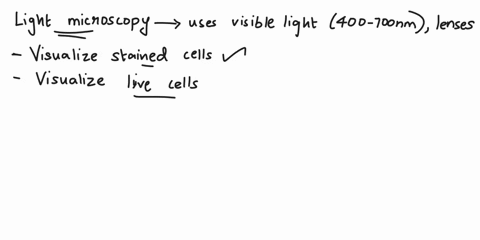 Light microscopy → uses visible light (400-700nm), lenses
- Visualize stained cells ✓
- Visualize live cells